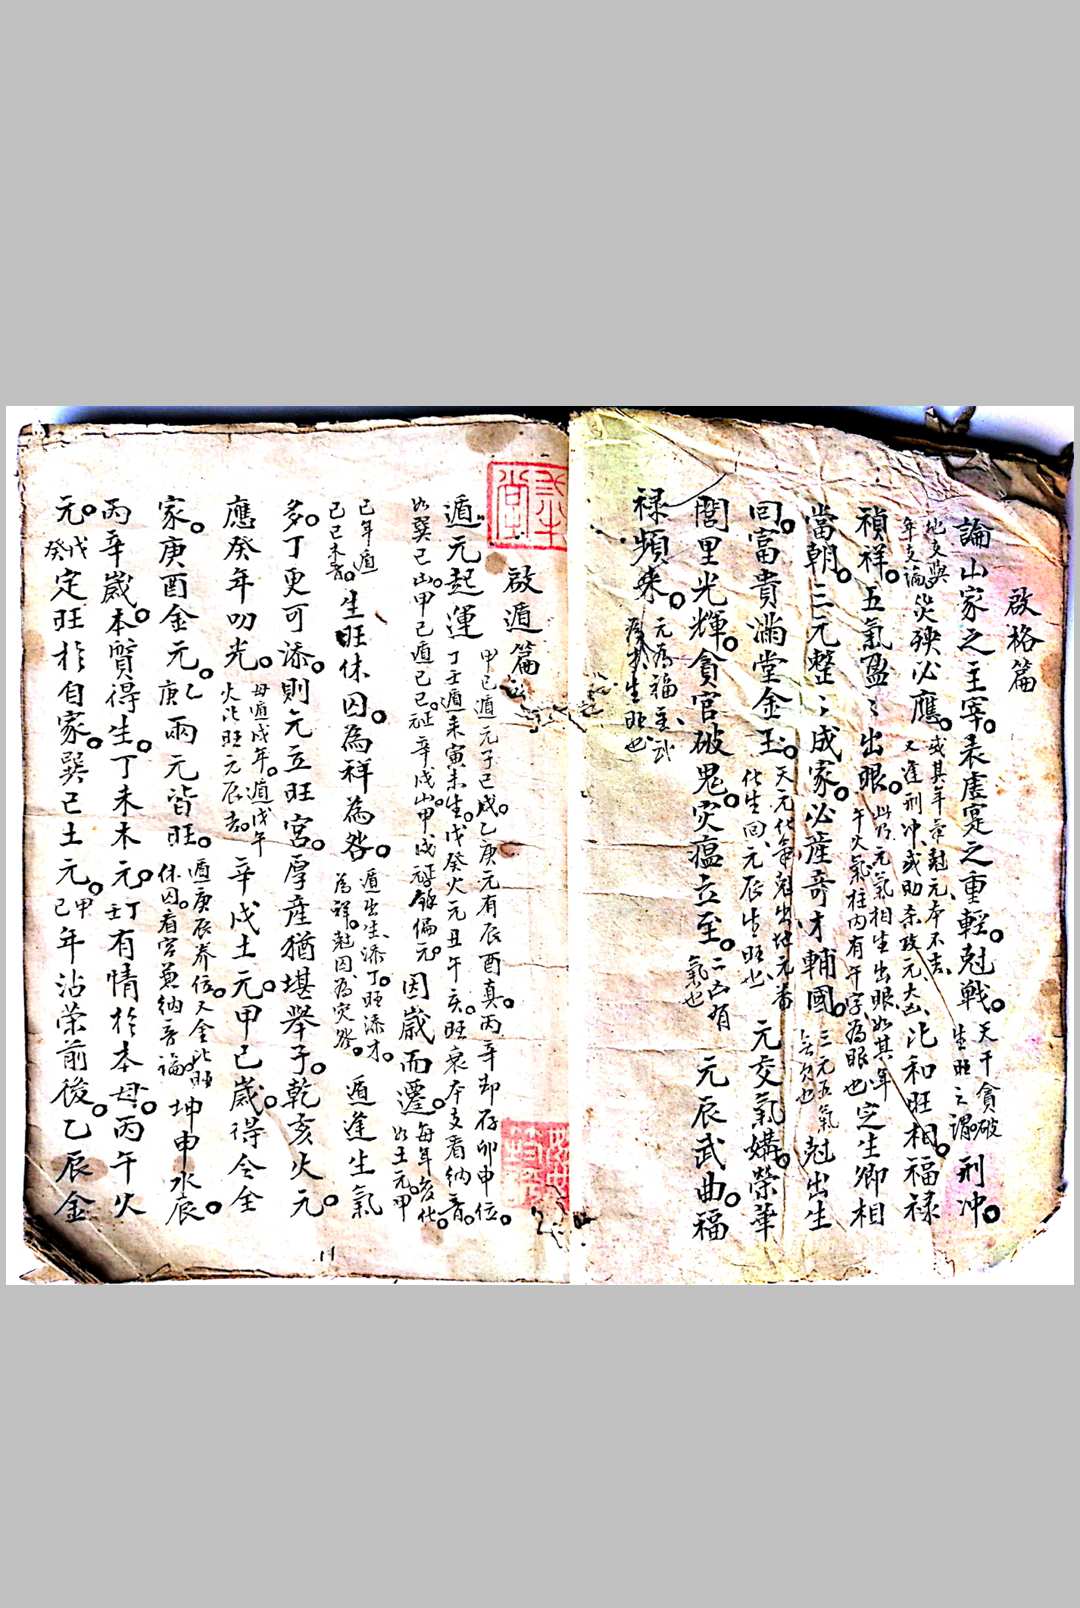 啟格篇
論山家之主宰。表虛寔之重輕。尅戰。天干貪破生旺之謂 刑冲。
地支與年支論 災殃必應。或其年音尅元、本不吉、又逢刑冲、或助杀攻元大凶、 比和旺相。福祿
禎祥。五氣盈〻出眼。此乃元氣相生出眼如其年午火氣柱内有午字為眼也 定生卿相
當朝。三元整〻成家。必産奇才輔國。三元五氣 尅出生
回。富貴滿堂金玉。天元化氣尅出坐元番化生回、元辰生旺也 元交氣媾。榮華
閭里光輝。貪官破鬼。灾瘟立至。二凶有氣也 元辰武曲。福
祿頻來。元為福主、武為才生旺也
啟遁篇
遁元起運 甲己遁元子己戌。乙庚元有辰酉真。丙辛却存卯申位。丁壬遁未寅未生。戊癸火元丑午亥。旺衰本支看納音。
如巽己山。甲己遁己巳。元正辛戌山。甲戌元餘偏元。 因歲而遷。每年变化。如土元。甲
己年遁己巳木音。 生旺休囚。為祥為咎。遁出生添丁。旺添才。為祥。尅囚、為灾咎。 遁逢生氣
多。丁更可添。則元立旺宮。厚産猶堪舉子。乾亥火元。
應癸年叨光。母遁戊年。遁戊午火比旺元辰吉。 辛戌土元。甲己歲。得令全
家。庚酉金元。乙庚兩元皆旺。遁庚辰养位。又金比助休囚。看宮兼納音論。 坤申水辰。
丙辛歲。本質得生。丁未木元。丁壬有情於本母。丙午火
元。戊癸定旺於自家。巽己土元。甲己年沾榮前後。乙辰金
11